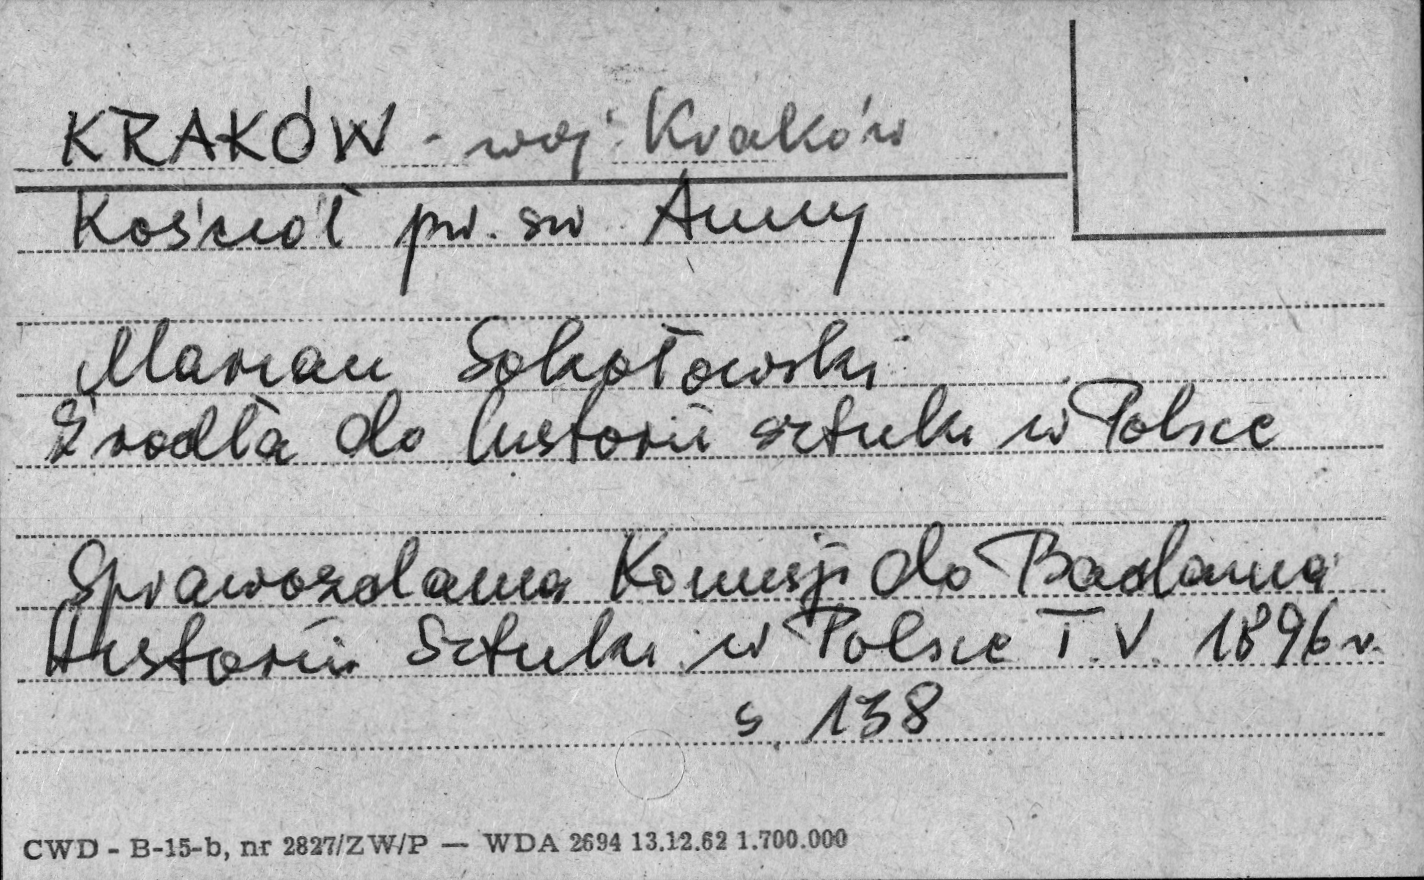 KRAKÓW - woj. Kraków
Kościół pw. św Anny
Marian Sokołowski
Źrodła do historii sztuki w Polsce
Sprawozdania Komisji do Badania
Historii Sztuki w Polsce T. V. 1896 r.
s. 138
CWD - B-15-b, nr 2827/ZW/P — WDA 2694 13.12.62 1.700.000